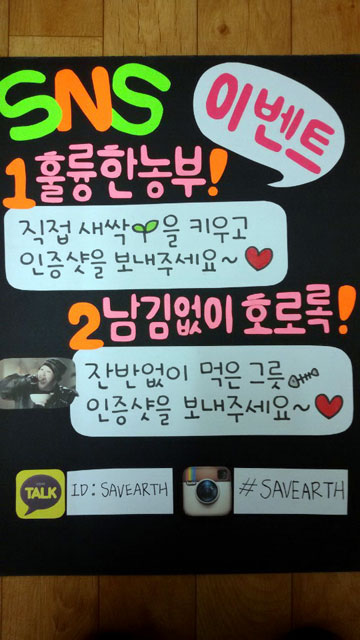 SNS
이벤트
1 훌륭한농부!
직접 새싹을 키우고
인증샷을 보내주세요~
2 남김없이 호로록!
잔반없이 먹은 그릇
인증샷을 보내주세요~
TALK
ID: SAVEARTH
# SAVEARTH